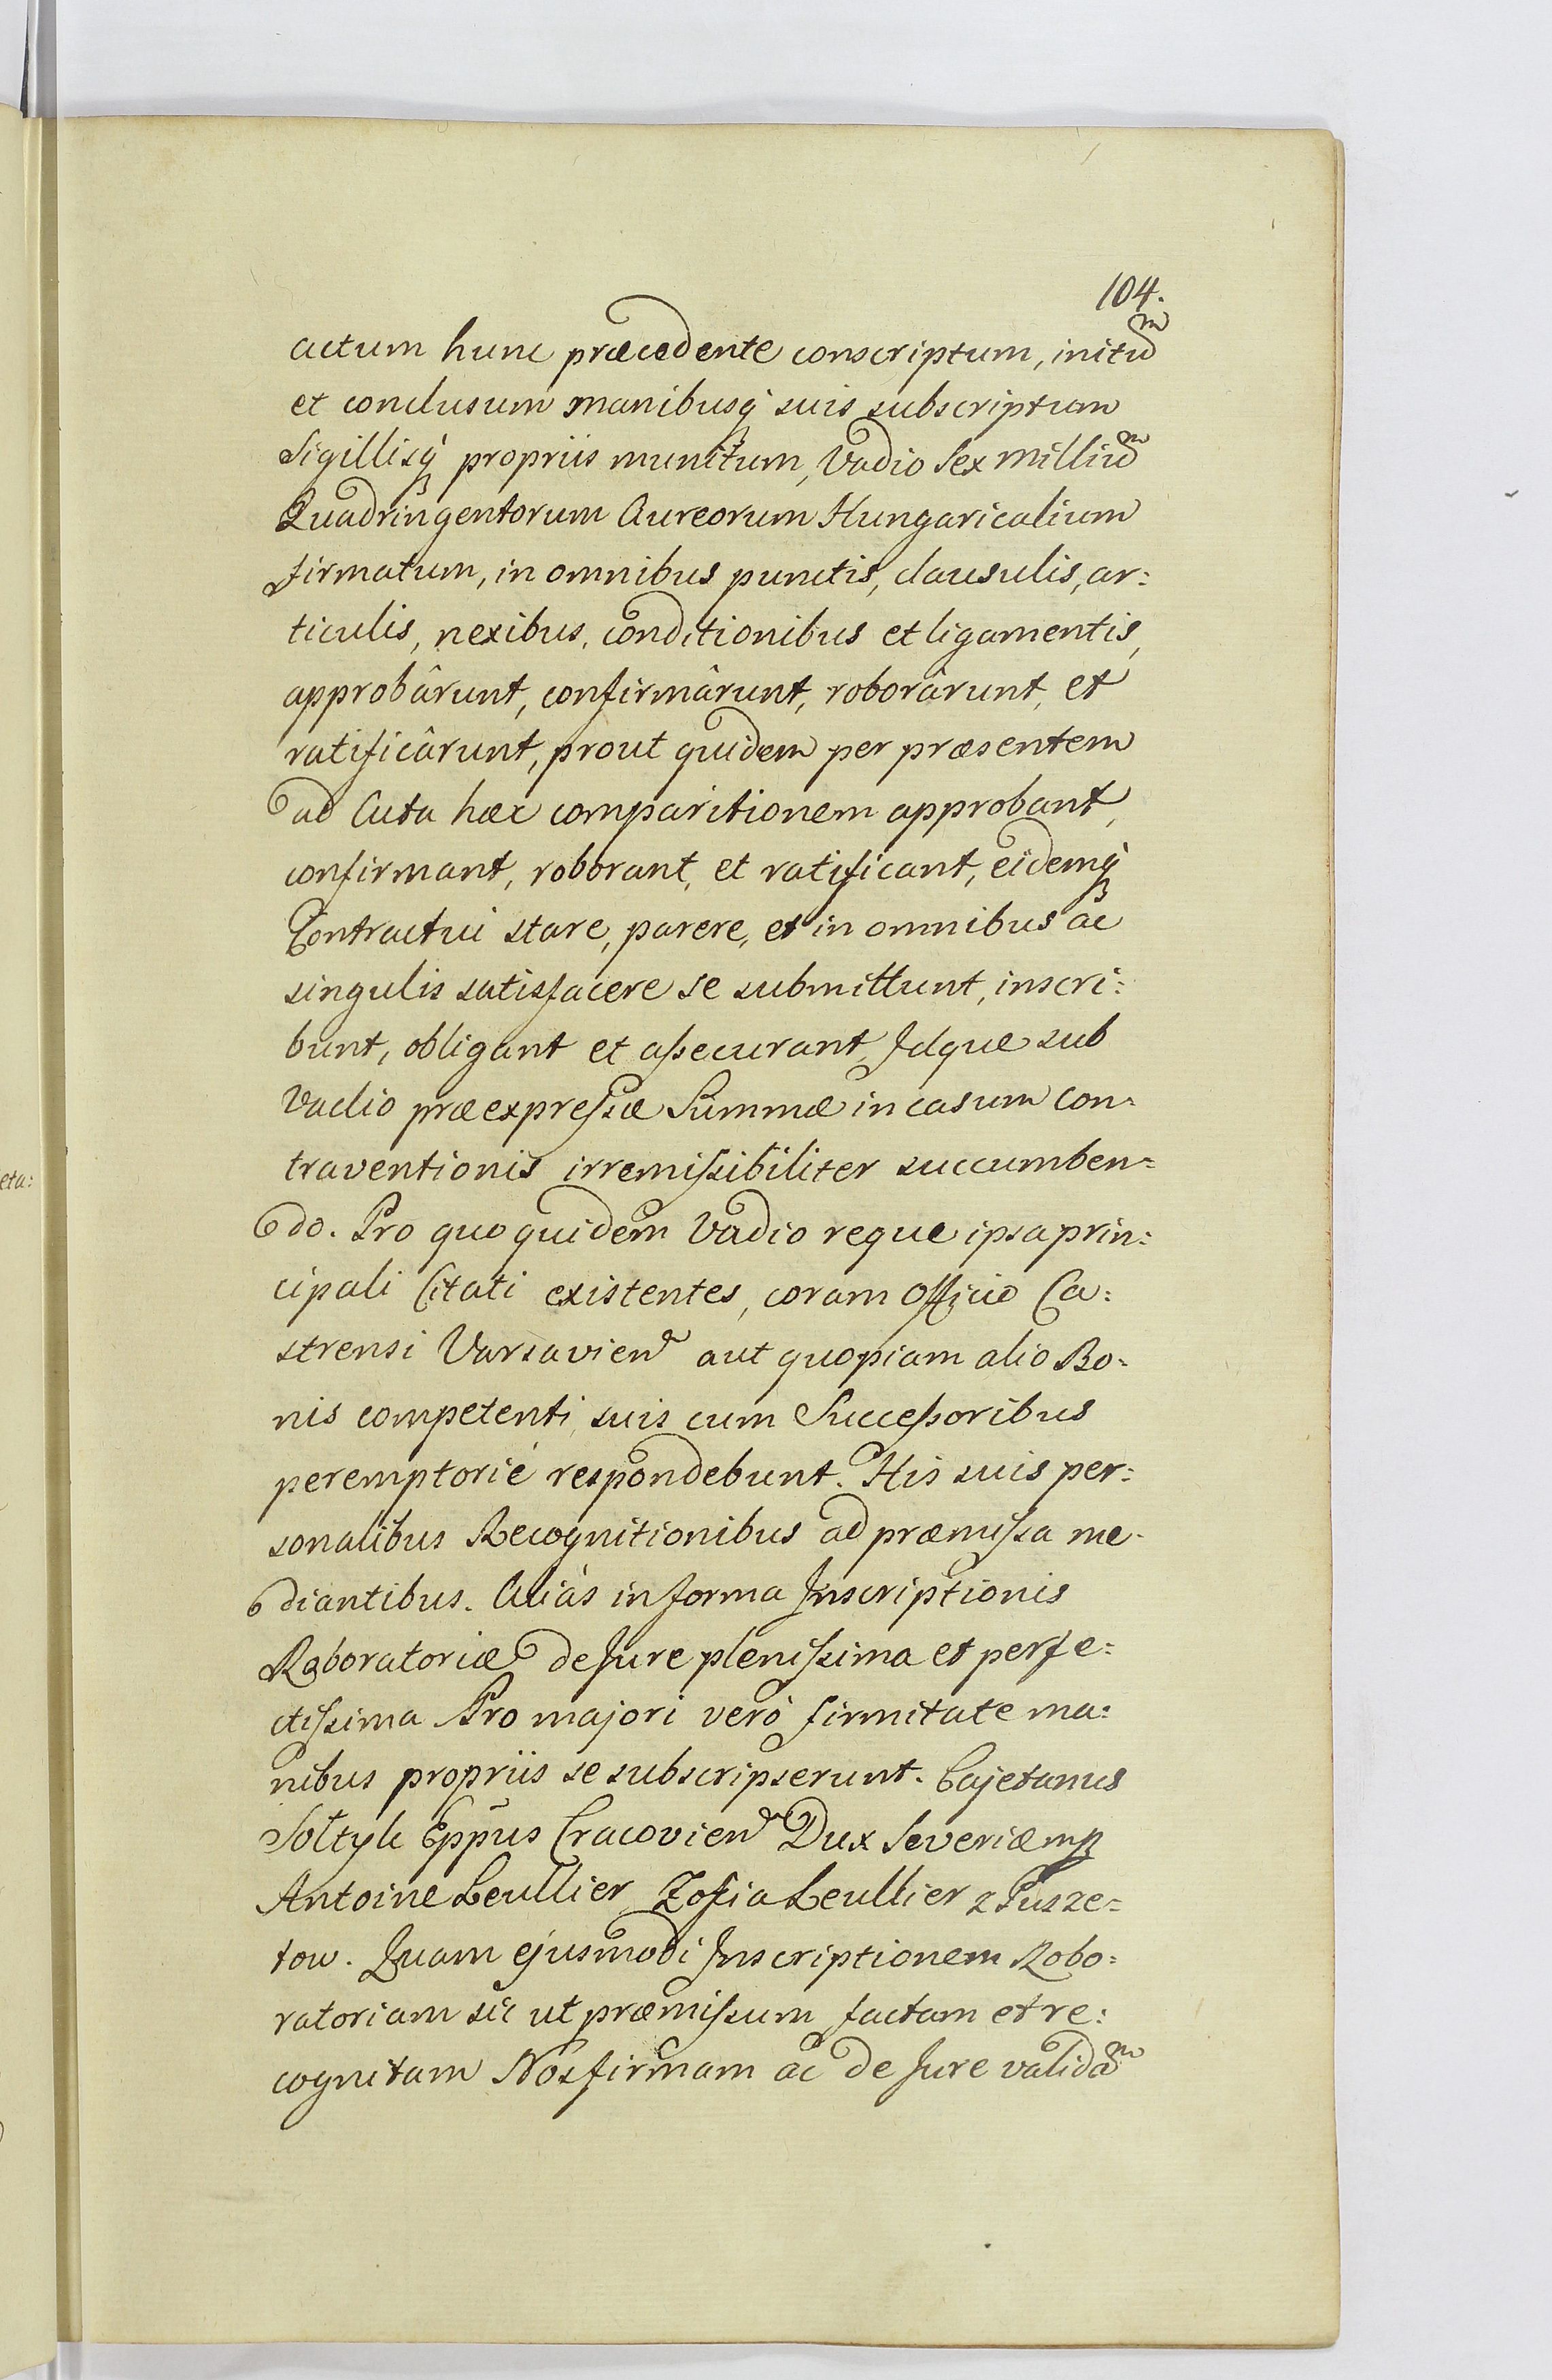 104.
actum hunc præcedente conscriptum, initũ
et conclusum manibusq́ suis subscriptum
Sigillisq́ propriis munitum, Vadio Sex milliũ
Quadringentorum Aureorum Hungaricalium
firmatum, in omnibus punctis, clausulis, ar:
ticulis, nexibus, conditionibus et ligamentis,
approbârunt, confirmârunt, roborârunt, et
ratificârunt, prout quidem per præsentem
ad Acta hæc comparitionem approbant,
confirmant, roborant, et ratificant, eidemq́
Contractui stare, parere, et in omnibus ac
singulis satisfacere se submittunt, inscri:
bunt, obligant et aſsecurant, Idque sub
Vadio præexpreſsæ Summæ in casum con:
traventionis irremiſsibiliter succumben=
eta:
do. Pro quo quidem Vadio reque ipsa prin:
cipali Citati existentes, coram Officio Ca:
strensi Varsavien aut quopiam alio Bo:
nis competenti, suis cum Succeſsoribus
peremptoriè respondebunt. His suis per:
sonalibus Recognitionibus ad præmiſsa me-
diantibus. Aliàs in forma Inscriptionis
Roboratoriæ de Jure pleniſsima et perfe:
ctiſsima Pro majori verò firmitate ma:
nibus propriis se subscripserunt. Cajetanus
Sołtyk Eppus Cracovien Dux Severiæ mp
Antoine Leullier, Zofia Leullier z Pusze=
tow. Quam ejusmodi Inscriptionem Robo:
ratoriam sic ut præmiſsum factam et re:
cognitam Nos firmam ac de Jure validam